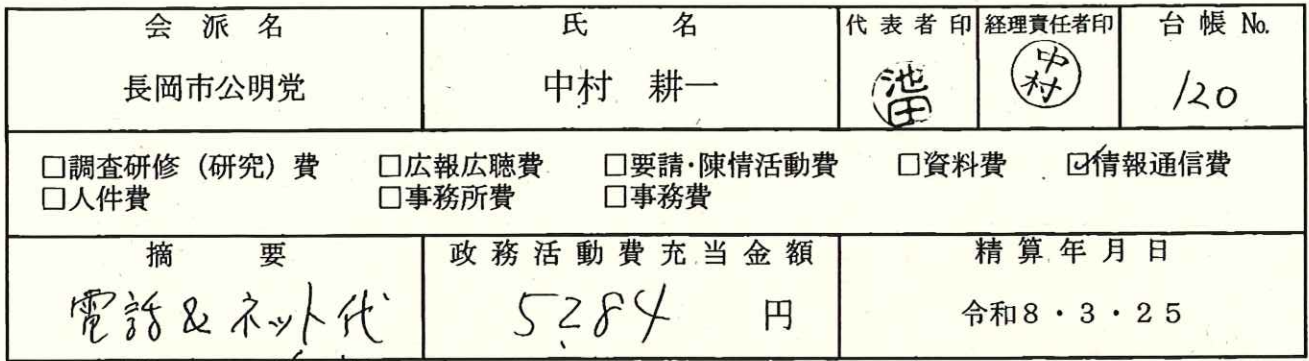 会派名 氏名 代表者印 経理責任者印 台帳No.
長岡市公明党 中村 耕一 池田 中村 120
□調査研修(研究)費 □広報広聴費 □要請・陳情活動費 □資料費 ☑情報通信費
□人件費 □事務所費 □事務費
摘要 政務活動費充当金額 精算年月日
電話&ネット代 5284 円 令和8・3・25